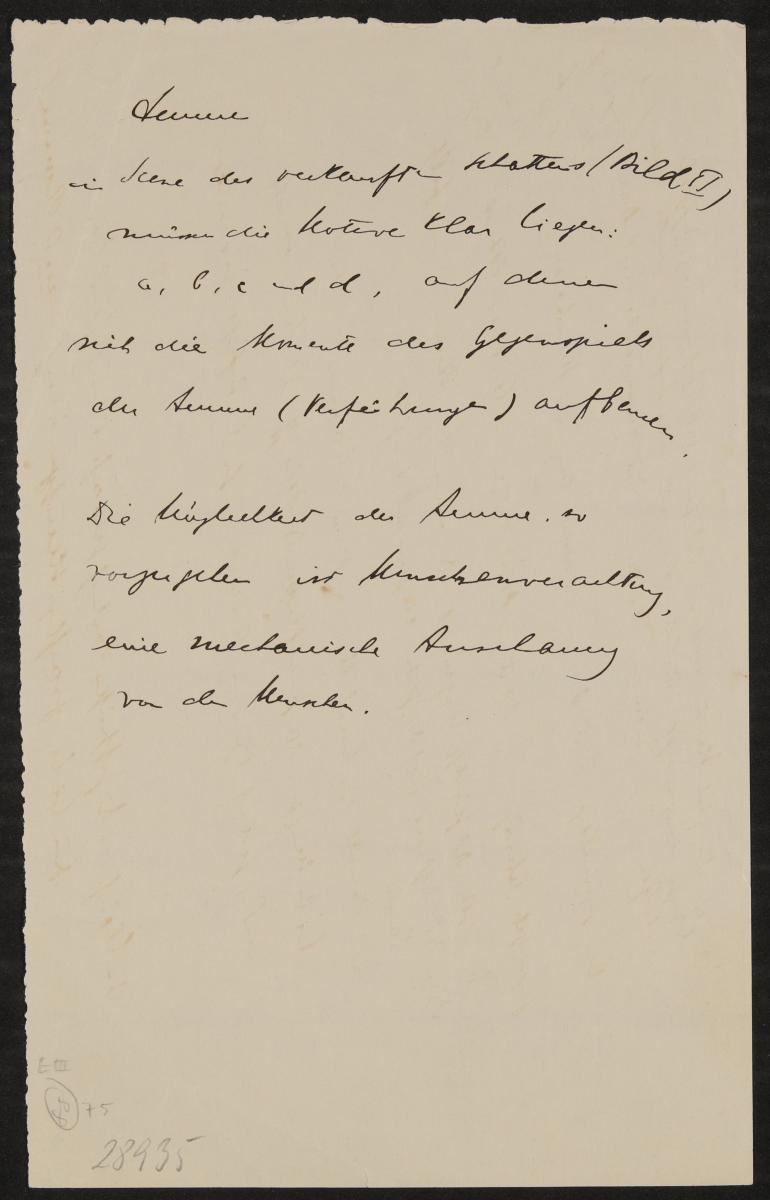 Amme
in Scene des verkauften Schattens (Bild II)
müssen die Motive klar liegen:
a, b, c und d, auf denen
sich die Momente des Gegenspiels
der Amme (Verführungen) aufbauen.
Die Möglichkeit der Amme so
vorzugehen ist Menschenverachtung,
eine mechanische Anschauung
von den Menschen.
E III
75
28935